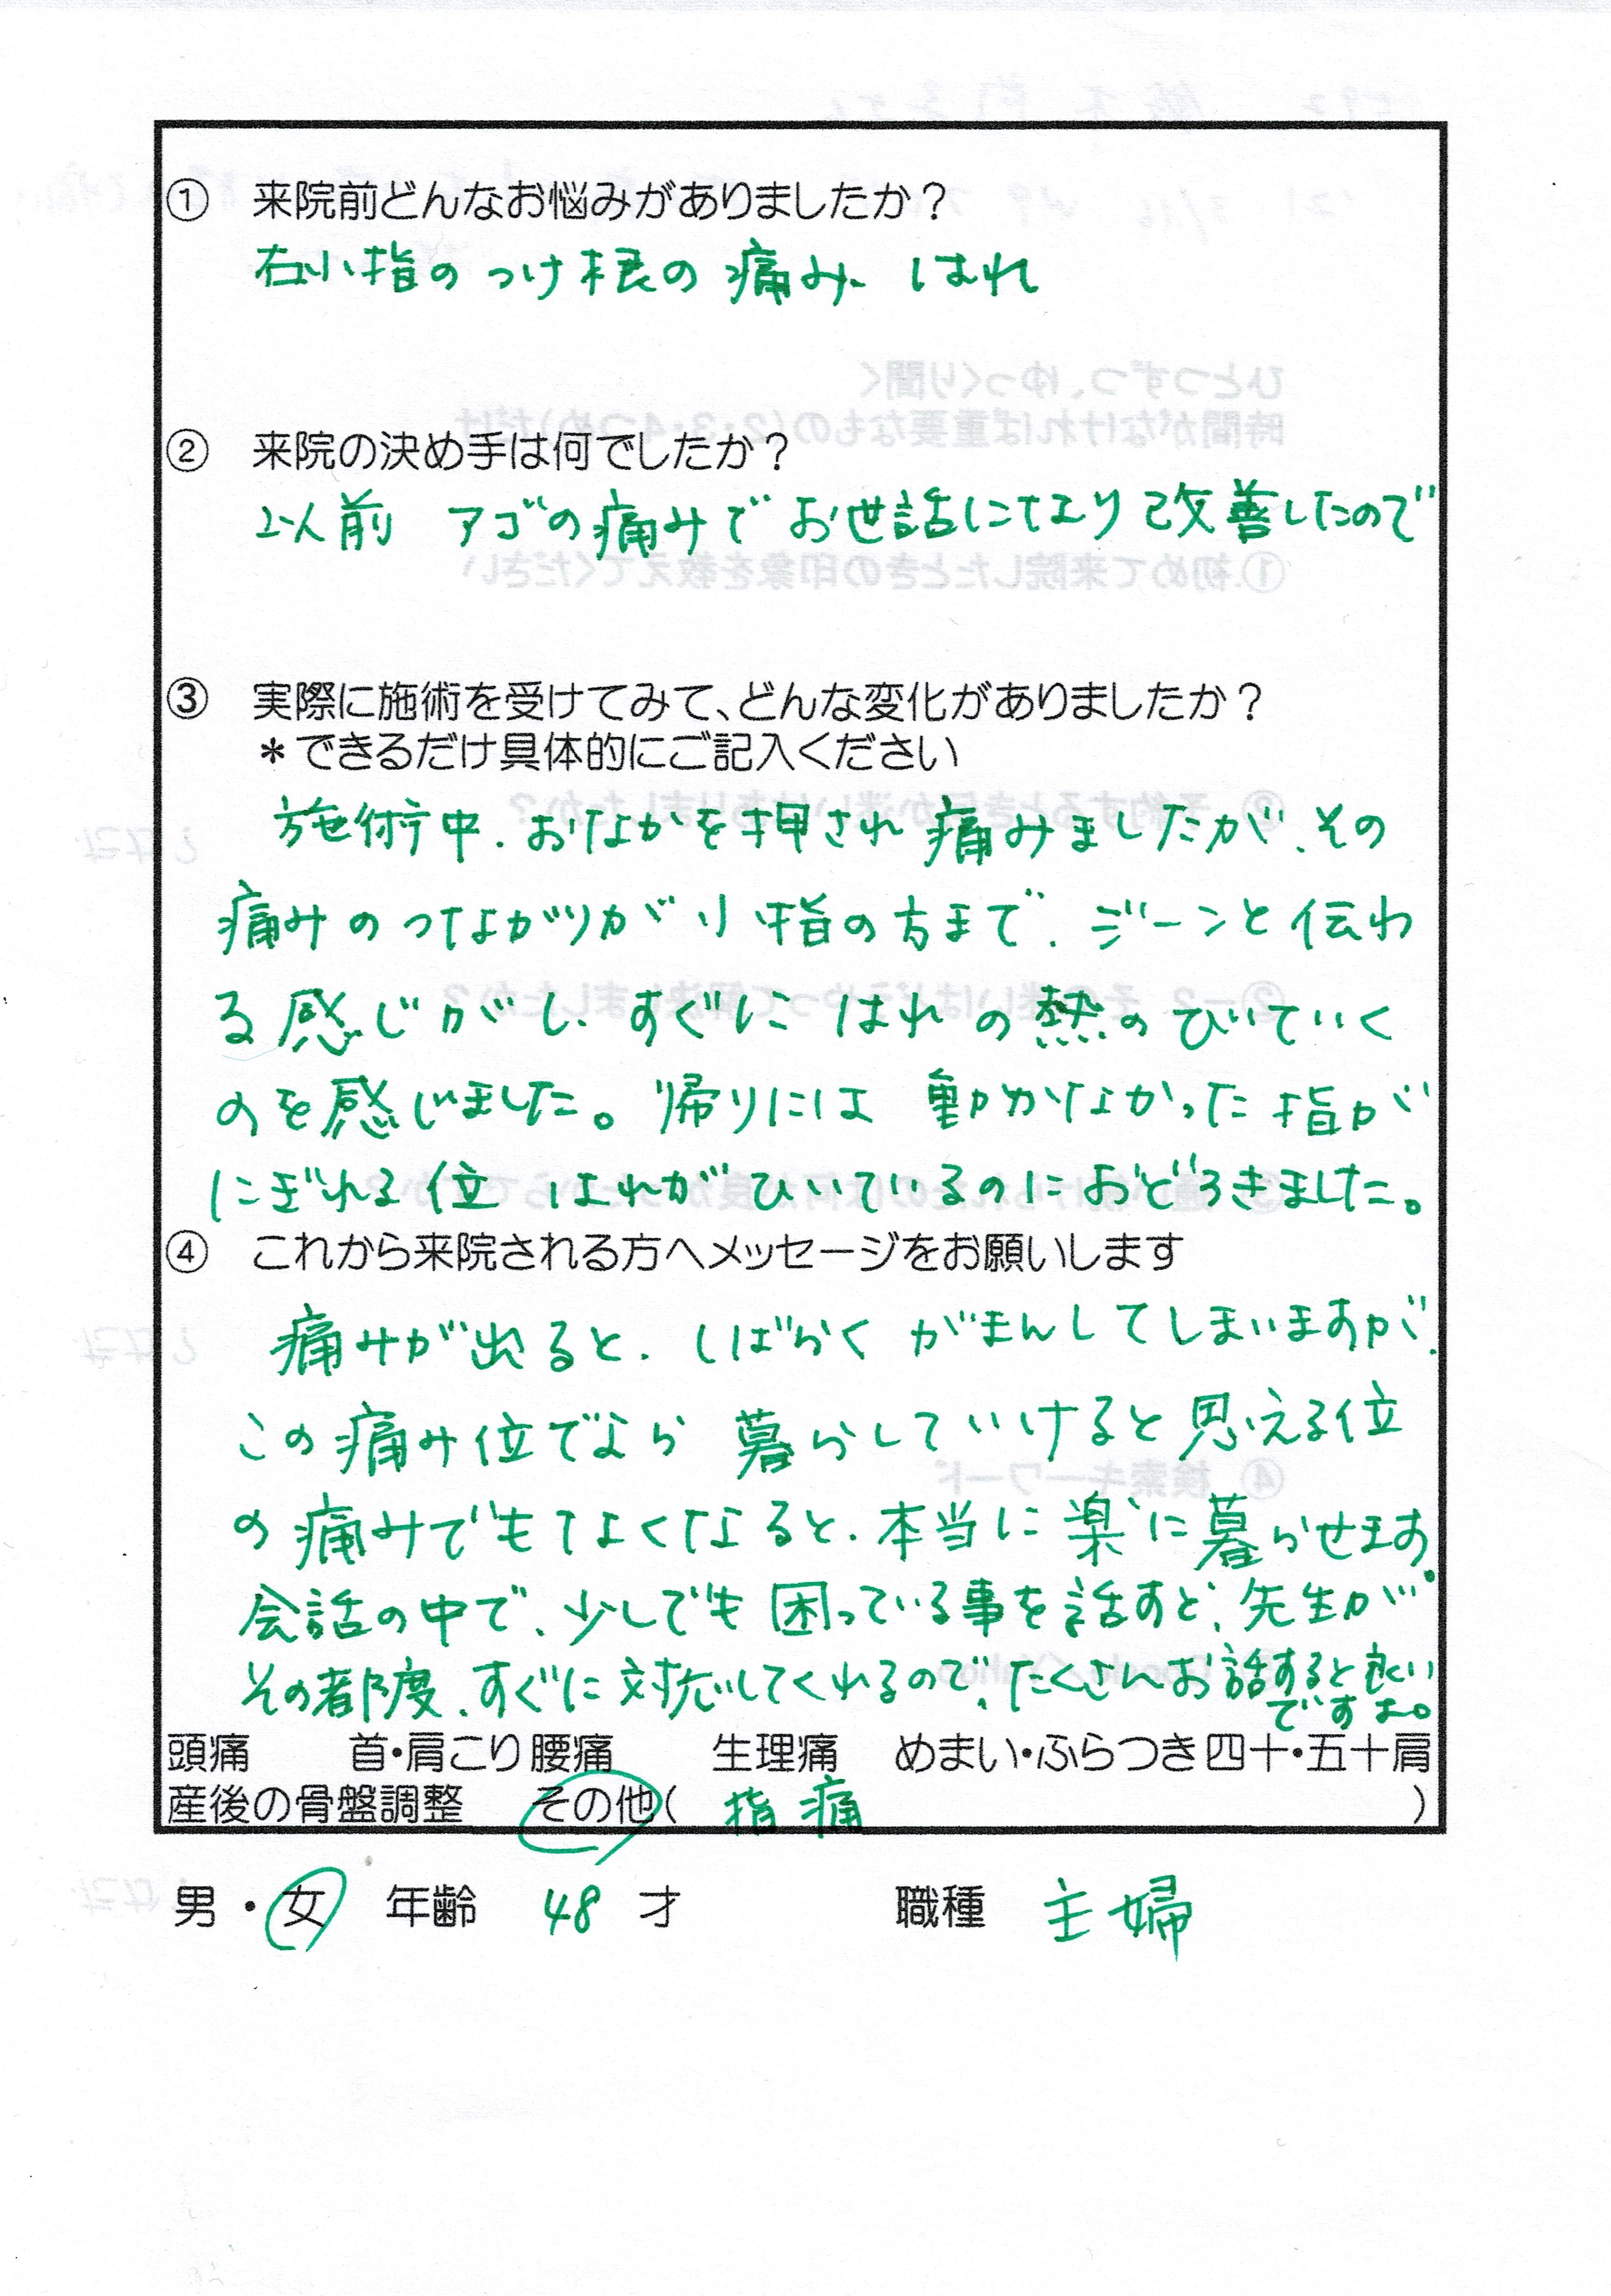 ① 来院前どんなお悩みがありましたか？
右小指のつけ根の痛み、はれ
② 来院の決め手は何でしたか？
以前 アゴの痛みでお世話になり改善したので
③ 実際に施術を受けてみて、どんな変化がありましたか？
＊できるだけ具体的にご記入ください
施術中、おなかを押され痛みましたが、その
痛みのつながりが小指の方まで、ジーンと伝わ
る感じがし、すぐにはれの熱のひいていく
のを感じました。帰りには動かなかった指が
にぎれる位 はれがひいているのにおどろきました。
④ これから来院される方へメッセージをお願いします
痛みが出ると、しばらくがまんしてしまいますが、
この痛み位でなら 暮らしていけると思える位
の痛みでもなくなると、本当に楽に暮らせます。
会話の中で、少しでも困っている事を話すと、先生が
その都度、すぐに対応してくれるので、たくさんお話すると良い
ですよ。
頭痛 首・肩こり 腰痛 生理痛 めまい・ふらつき 四十・五十肩
産後の骨盤調整 その他（ 指痛 ）
男 ・ 女 年齢 48 才 職種 主婦